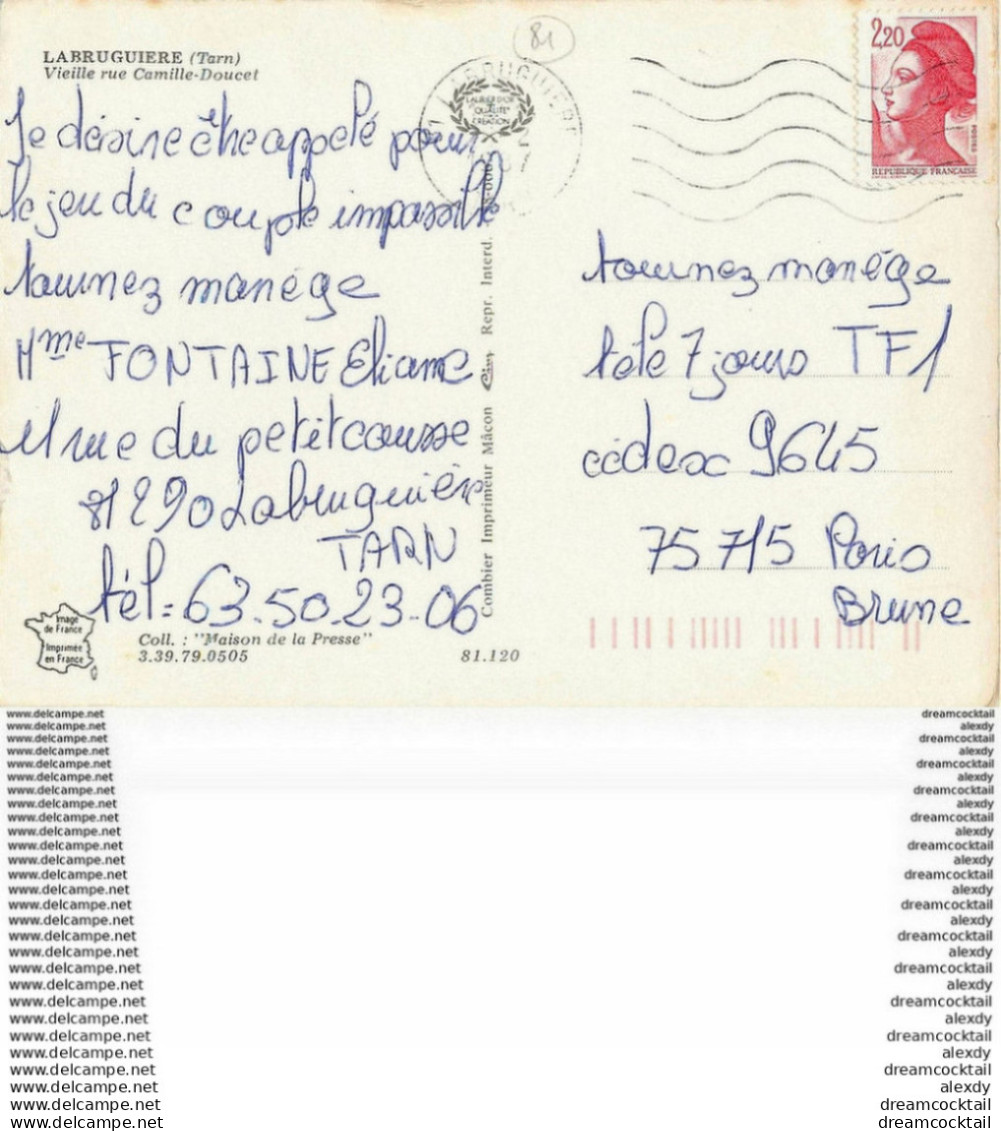 LABRUGUIERE (Tarn)
Vieille rue Camille-Doucet
81
LABRUGUIERE
LAURIER D'OR
QUALITE
CREATION
2,20
POSTES
REPUBLIQUE FRANCAISE
Je désire être appelé pour
le jeu du couple impossible
tournez manège
Mme FONTAINE Eliane
11 rue du petit causse
81290 Labruguière
TARN
tél = 63.50.23-06
tournez manège
télé 7 jours TF1
cédex 9645
75715 Paris
Brune
Combier Imprimeur Mâcon Cim Repr. Interd.
Image
de France
Imprimée
en France
Coll. : "Maison de la Presse"
3.39.79.0505
81.120
www.delcampe.net dreamcocktail
www.delcampe.net alexdy
www.delcampe.net dreamcocktail
www.delcampe.net alexdy
www.delcampe.net dreamcocktail
www.delcampe.net alexdy
www.delcampe.net dreamcocktail
www.delcampe.net alexdy
www.delcampe.net dreamcocktail
www.delcampe.net alexdy
www.delcampe.net dreamcocktail
www.delcampe.net alexdy
www.delcampe.net dreamcocktail
www.delcampe.net alexdy
www.delcampe.net dreamcocktail
www.delcampe.net alexdy
www.delcampe.net dreamcocktail
www.delcampe.net alexdy
www.delcampe.net dreamcocktail
www.delcampe.net alexdy
www.delcampe.net dreamcocktail
www.delcampe.net alexdy
www.delcampe.net dreamcocktail
www.delcampe.net alexdy
www.delcampe.net dreamcocktail
www.delcampe.net alexdy
www.delcampe.net dreamcocktail
www.delcampe.net dreamcocktail